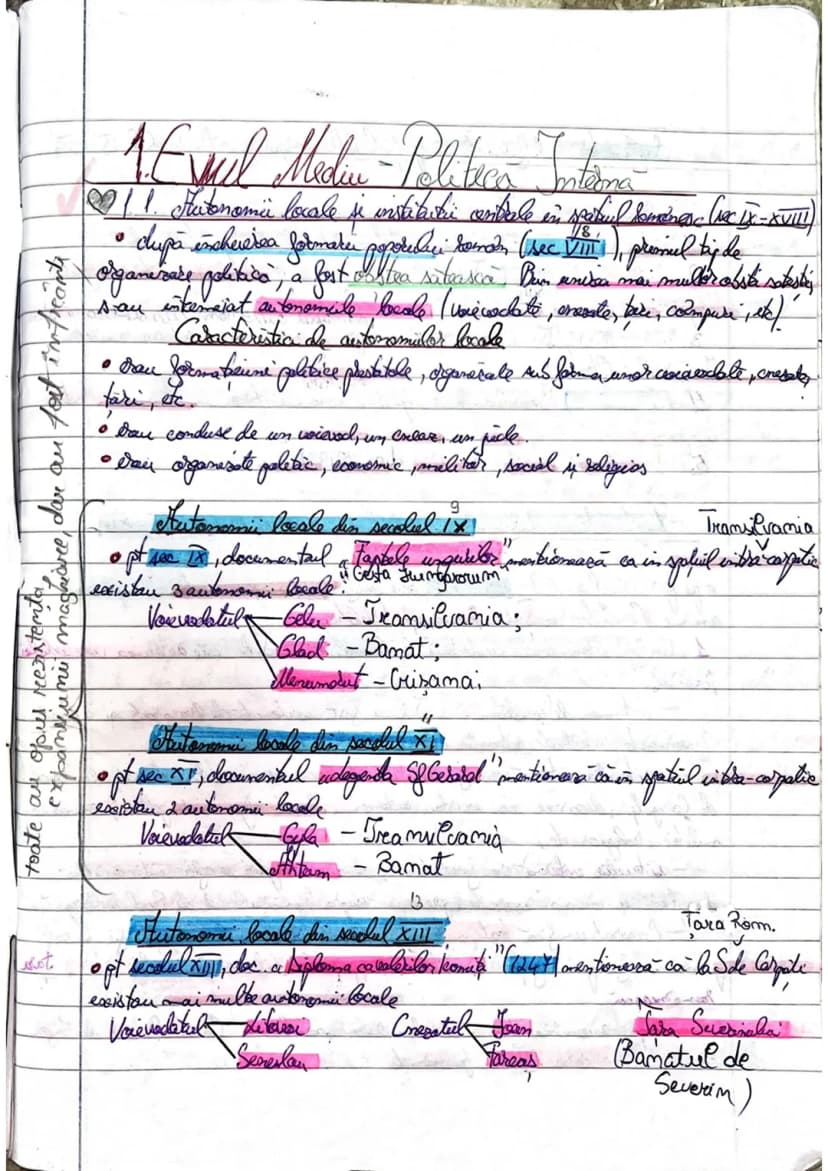 1. Evul Mediu - Politica Internă
1.1. Autonomii locale și instituții centrale în spațiul românesc (sec IX-XVIII)
8
• după încheierea formării poporului român (sec VIII), primul tip de
organizare politică, a fost obștea sătească. Prin unirea mai multor obști sătești,
s-au întemeiat autonomiile locale (voievodate, cnezate, țări, câmpuri, etc).
Caracteristici de autonomiilor locale
• erau formațiuni politice prestatale, organizate sub forma unor voievodate, cnezate,
țări, etc.
• erau conduse de un voievod, un cneaz, un jude.
• erau organizate politic, economic, militar, social și religios
toate au opus rezistență
expansiunii maghiare, dar au fost înfrânte
9
Autonomii locale din secolul IX
Transilvania
• pt sec IX, documentul "Faptele ungurilor" menționează ca în spațiul intra-carpatic
"Gesta Hungarorum"
existau 3 autonomii locale:
Voievodatul Gelu - Transilvania;
Glad - Banat;
Menumorut - Crișana;
11
Autonomii locale din secolul XI
• pt sec XI, documentul "Legenda Sf Gerard" menționează că în spațiul intra-carpatic
existau 2 autonomii locale
Voievodatul Gyla - Transilvania
Ahtum - Banat
13
Autonomii locale din secolul XIII
Țara Rom.
• pt secolul XIII, doc. "Diploma cavalerilor ioniți" (1247) menționează că la S de Carpați
existau mai multe autonomii locale
Voievodatul Litovoi Cnezatul Ioan Țara Severinului
Seneslau Farcaș (Banatul de
Severin)